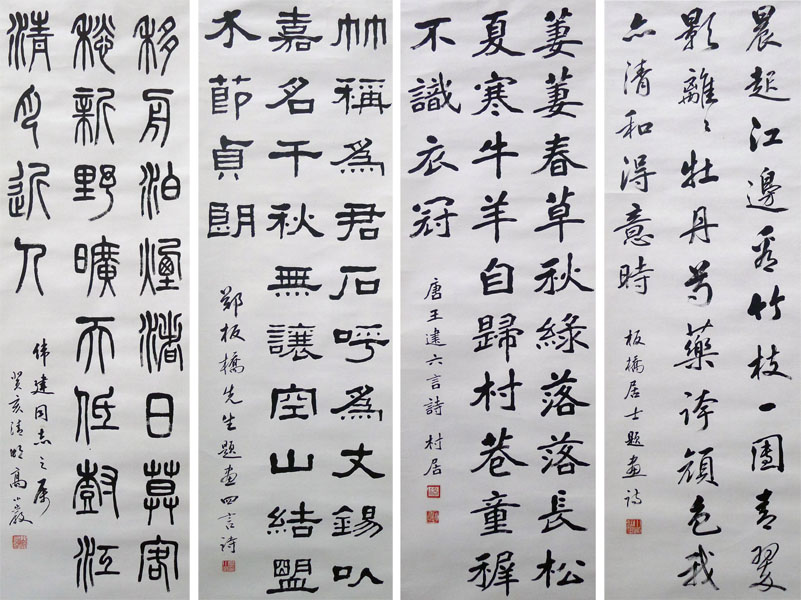 晨起江邊看竹枝一團青翠
影離〻牡丹芍藥誇顔色我
亦清和得意時
板橋居士題畫詩
萋萋春草秋綠落落長松
夏寒牛羊自歸村巷童穉
不識衣冠
唐王建六言詩 村居
竹稱爲君石呼爲丈錫以
嘉名千秋無讓空山結盟
介節貞朗
鄭板橋先生題畫四言詩
移舟泊煙渚日莫客
愁新野曠天低樹江
清月近人
伟建同志之属
癸亥清明高小巖